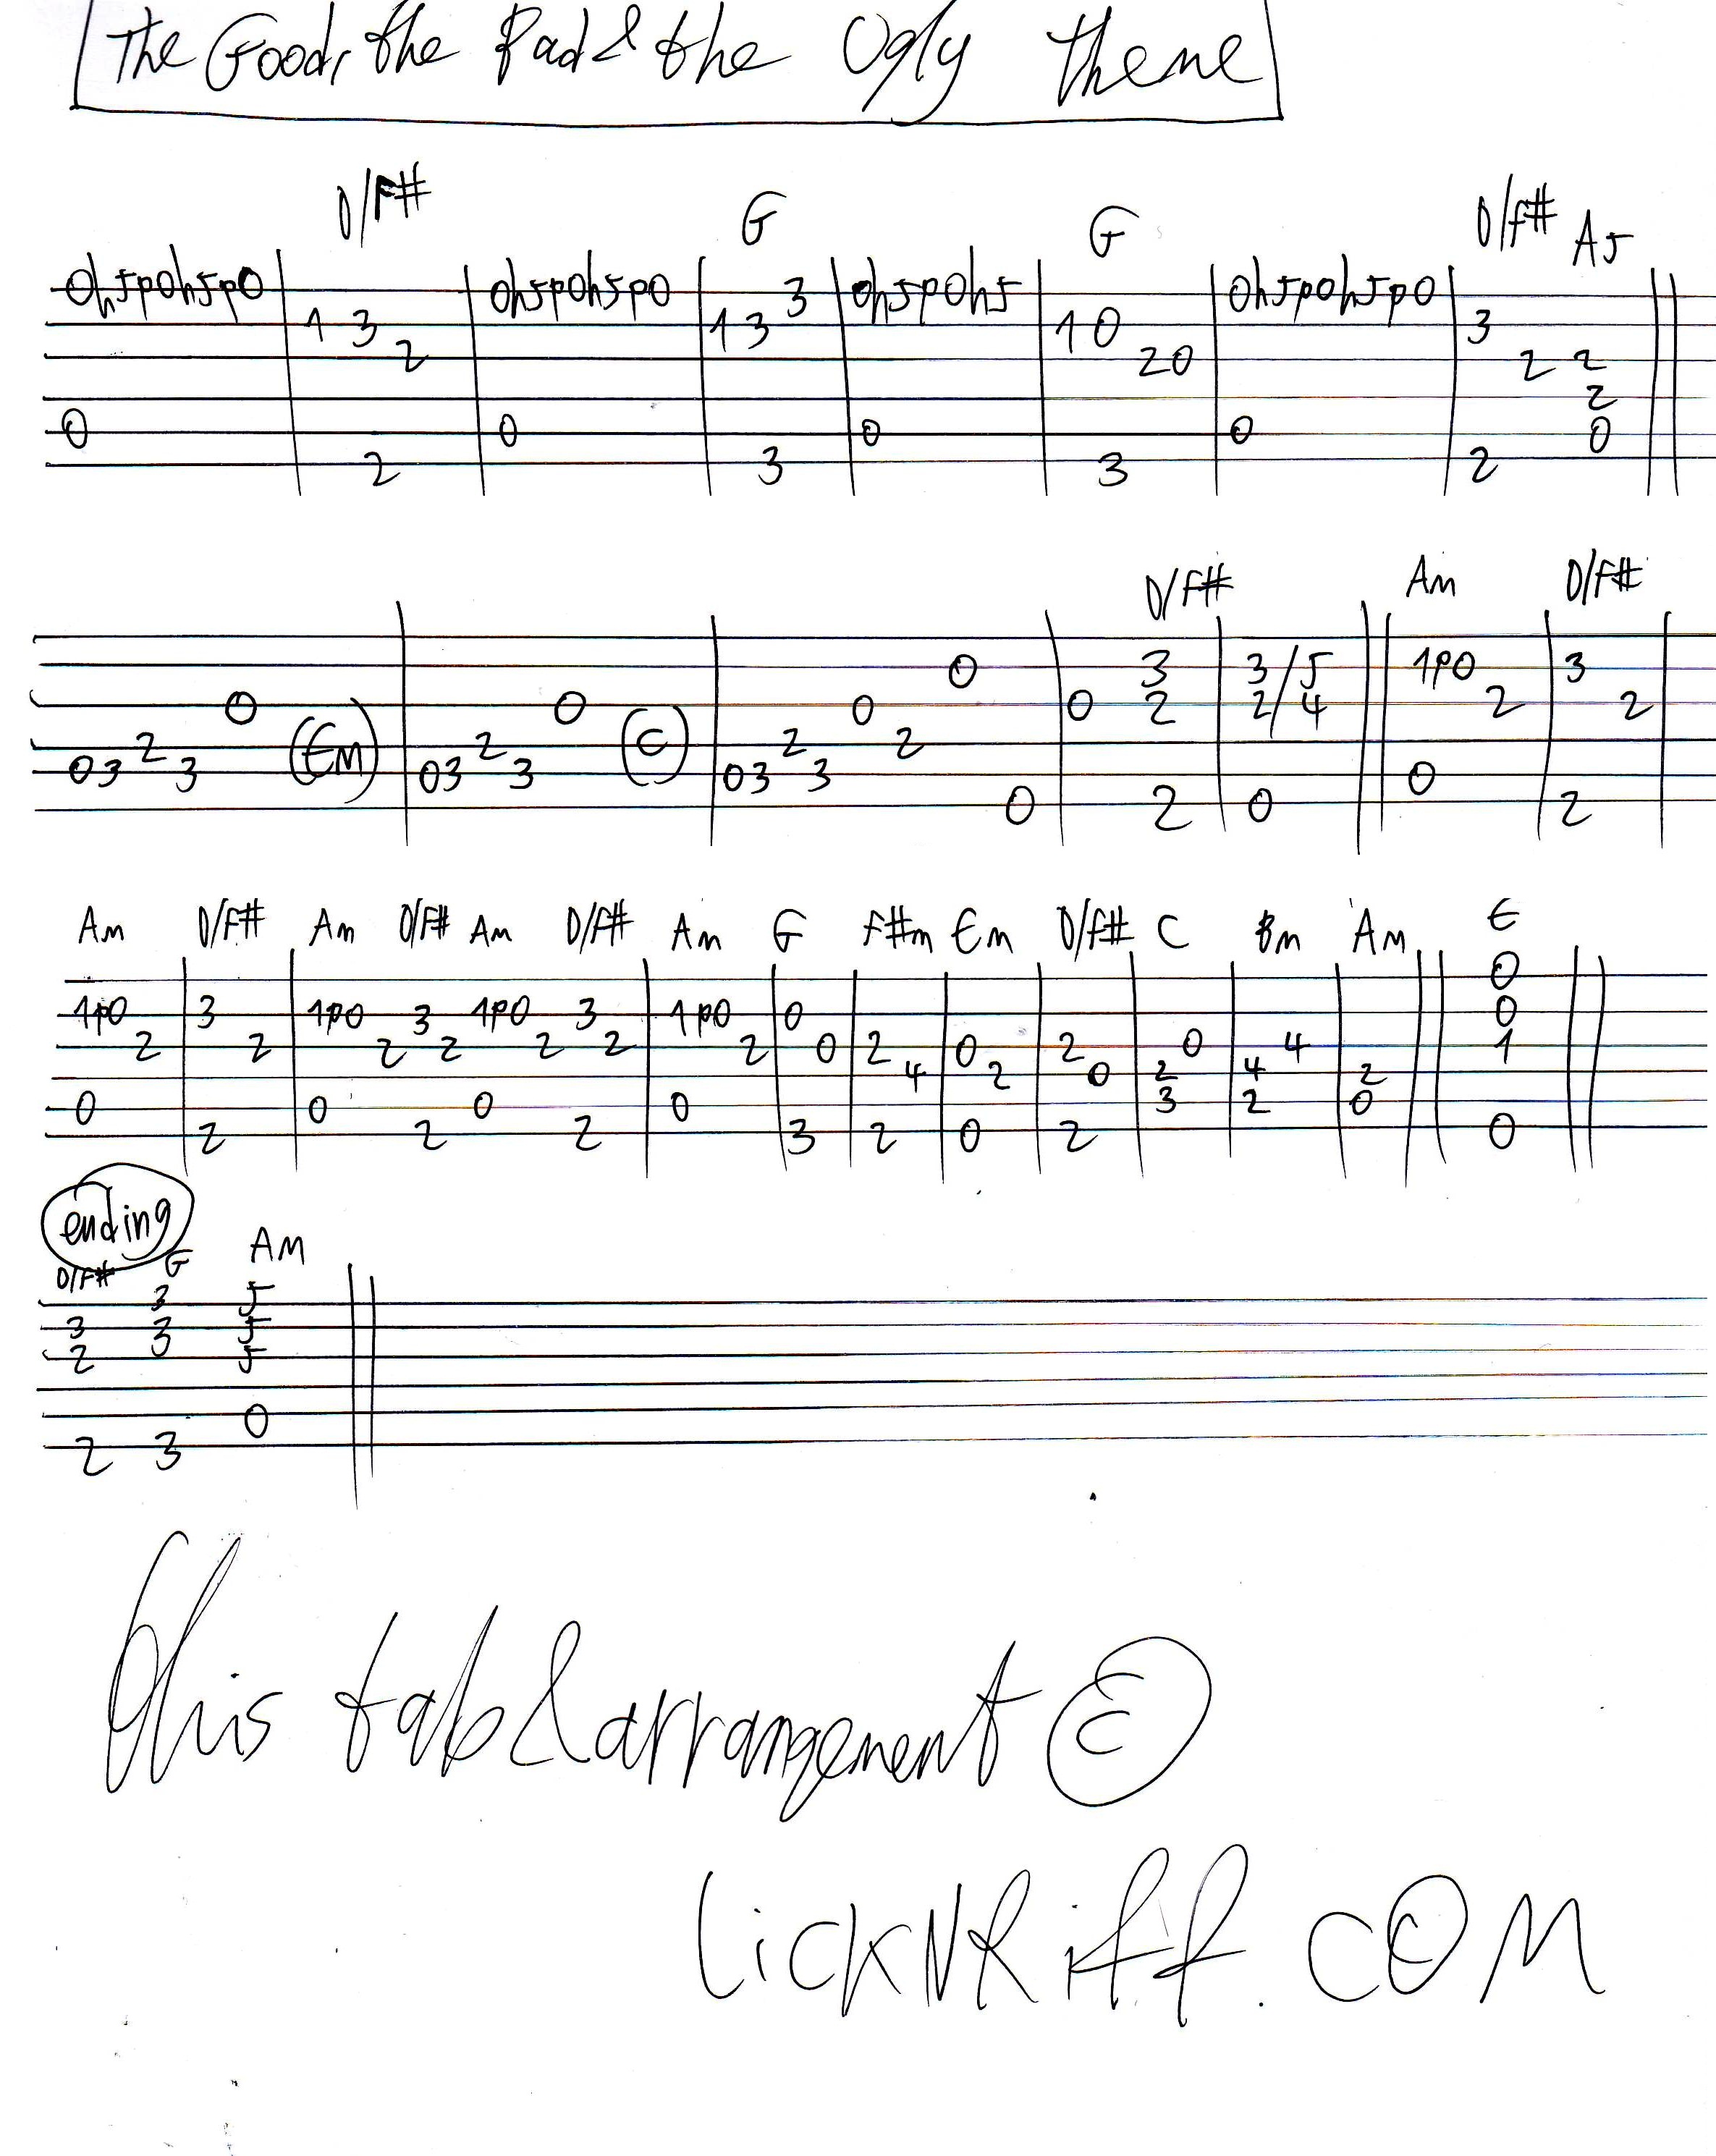 The Good, the Bad & the Ugly theme
D/F# G G D/F# A5
0h5p0h5p0 0h5p0h5p0 3 0h5p0h5 0h5p0h5p0
1 3 1 3 1 0 3
2 2 0 2 2
2
0 0 0 0 0
2 3 3 2
D/F# Am D/F#
0 3 3/5 1p0 3
0 0 0 0 2 2/4 2 2
2 (Em) 2 (C) 2 2
0 3 3 0 3 3 0 3 3 0
0 2 0 2
Am D/F# Am D/F# Am D/F# Am G F#m Em D/F# C Bm Am E
0
1p0 3 1p0 3 1p0 3 1p0 0 0
2 2 2 2 2 2 2 0 2 0 2 0 4 1
4 2 0 2 4 2
0 0 0 0 3 2 0
2 2 2 3 2 0 2 0
ending
D/F# G Am
3 5
3 3 5
2 5
0
2 3
This tab & arrangement ©
LickNRiff.com